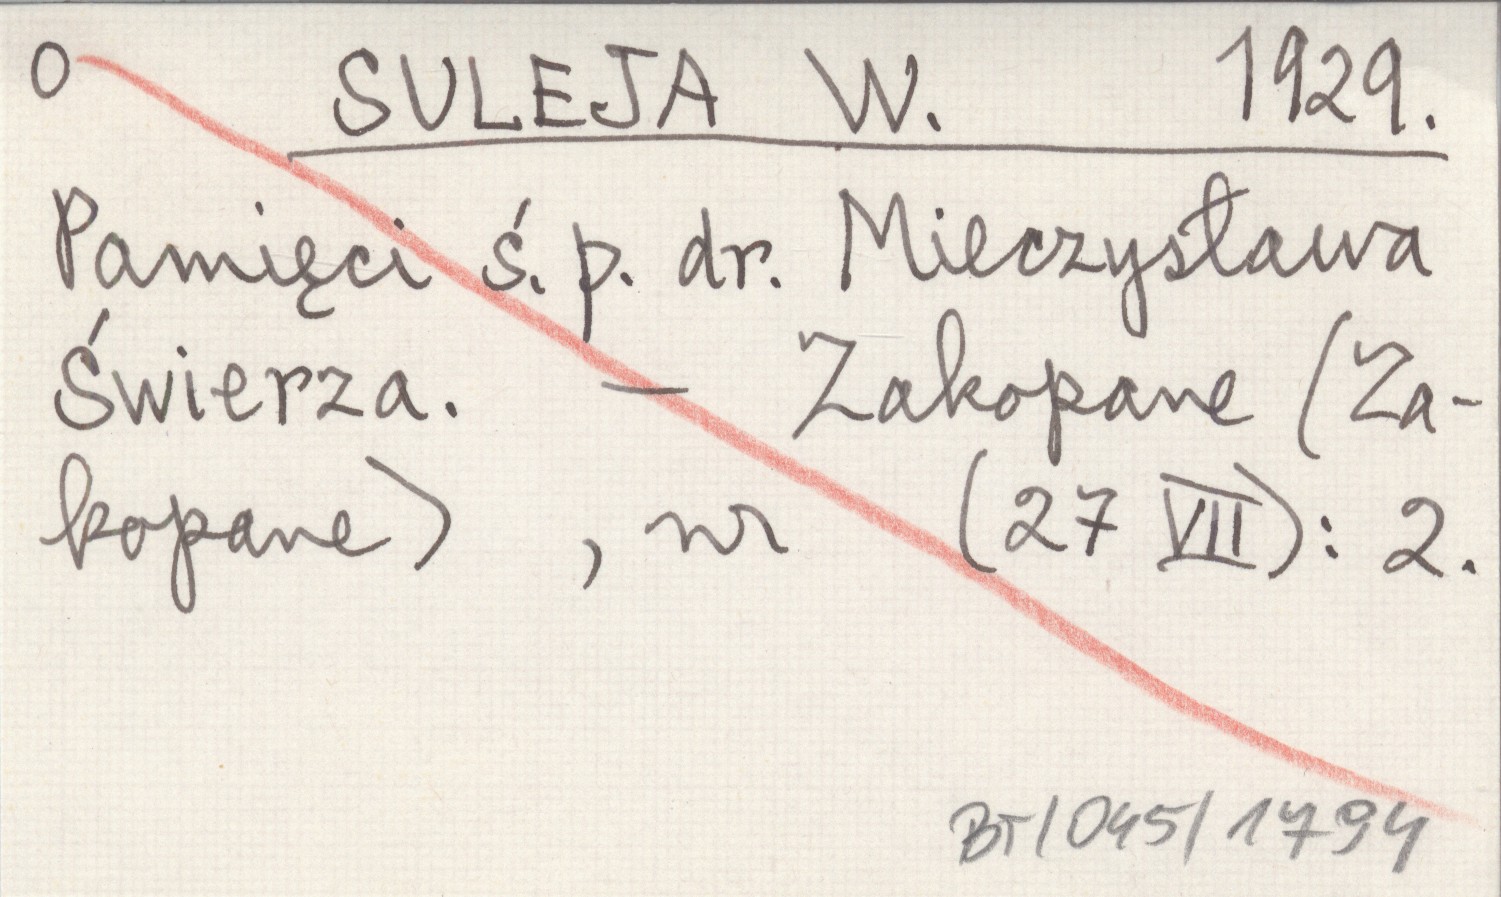 O SULEJA W. 1929.
Pamięci ś.p. dr. Mieczysława
Świerza. — Zakopane (Za-
kopane) , nr (27 VII): 2.
BT/045/1794